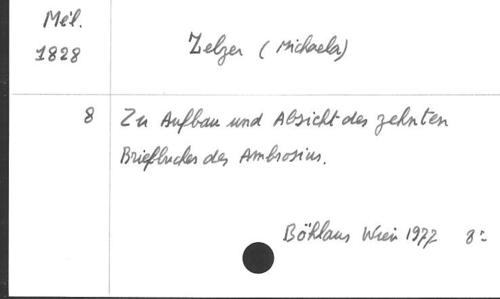 Mél.
1828
Zelzer (Michaela)
8 Zu Aufbau und Absicht des zehnten
Briefbuches des Ambrosius.
Böhlaus Wien 1977 8°